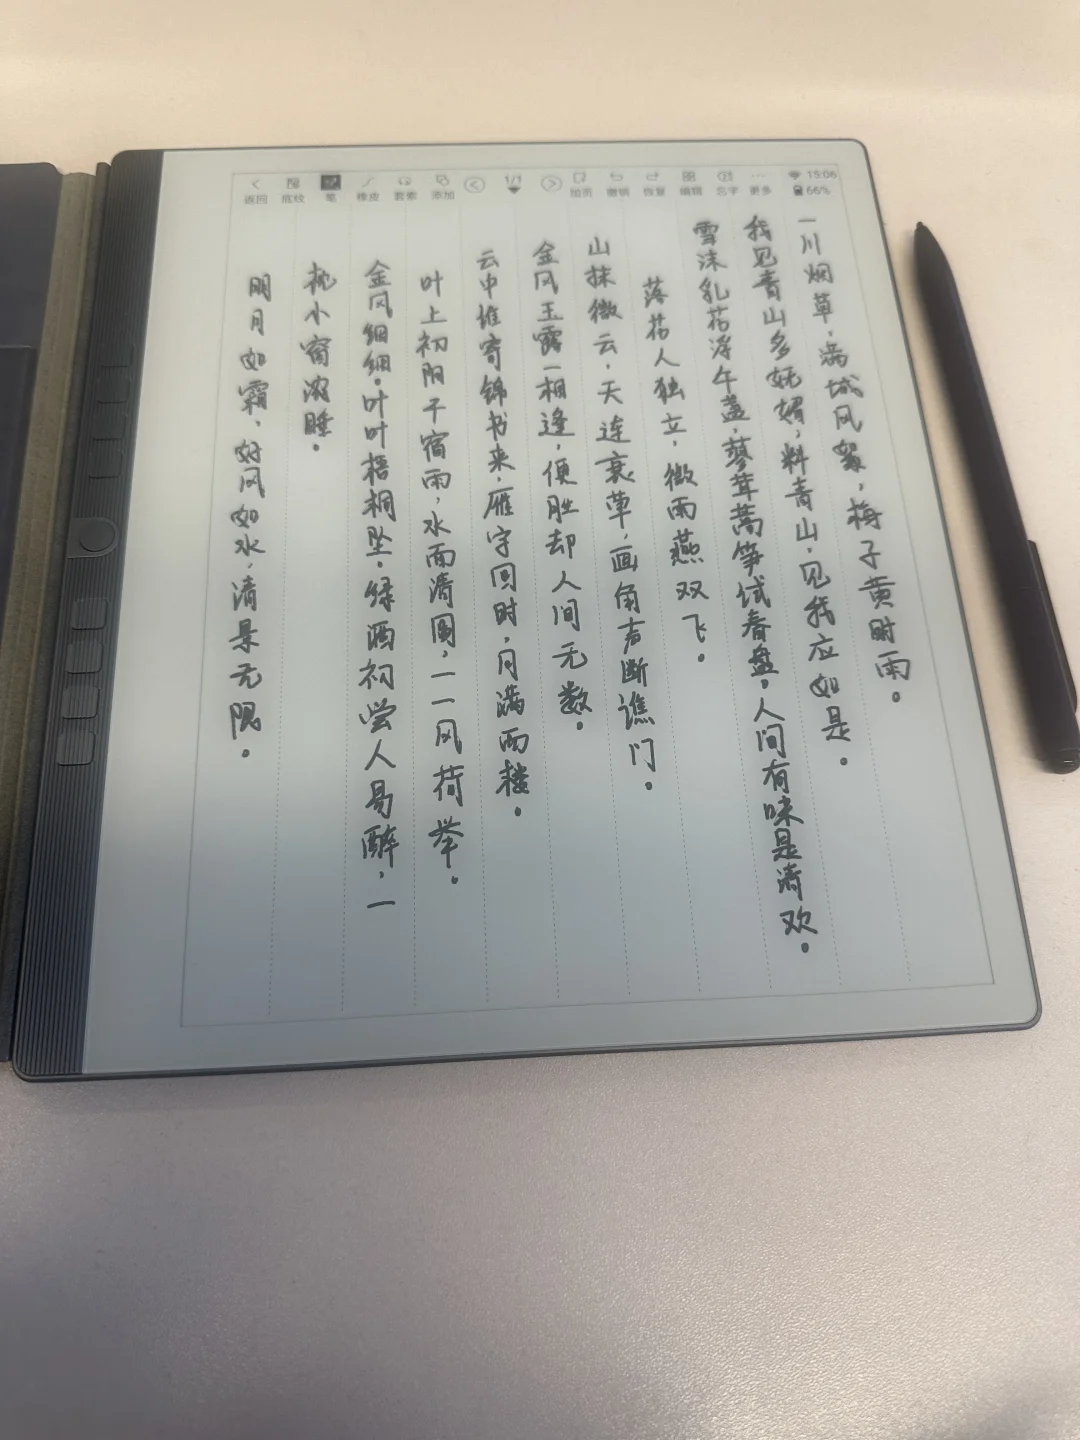 返回 底纹 笔 橡皮 套索 添加 1/1 加页 撤销 恢复 编辑 忘字 更多 15:06 66%
一川烟草，满城风絮，梅子黄时雨。
我见青山多妩媚，料青山，见我应如是。
雪沫乳花浮午盏，蓼茸蒿笋试春盘。人间有味是清欢。
落花人独立，微雨燕双飞。
山抹微云，天连衰草，画角声断谯门。
金风玉露一相逢，便胜却人间无数。
云中谁寄锦书来，雁字回时，月满西楼。
叶上初阳干宿雨，水面清圆，一一风荷举。
金风细细。叶叶梧桐坠。绿酒初尝人易醉，一
枕小窗浓睡。
明月如霜，好风如水，清景无限。